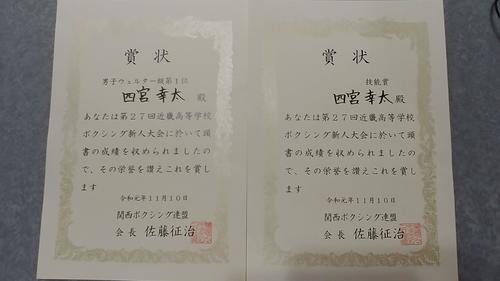 賞状
男子ウェルター級第1位
四宮幸太 殿
あなたは第27回近畿高等学校
ボクシング新人大会に於いて頭
書の成績を収められましたの
で、その栄誉を讃えこれを賞し
ます
令和元年11月10日
関西ボクシング連盟
会長 佐藤征治
賞状
技能賞
四宮幸太 殿
あなたは第27回近畿高等学校
ボクシング新人大会に於いて頭
書の成績を収められましたの
で、その栄誉を讃えこれを賞し
ます
令和元年11月10日
関西ボクシング連盟
会長 佐藤征治